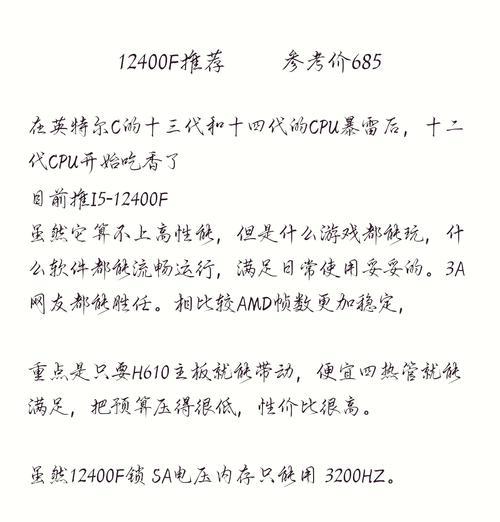 12400F推荐 参考价685
在英特尔C的十三代和十四代的CPU暴雷后，十二
代CPU开始吃香了
目前推I5-12400F
虽然它算不上高性能，但是什么游戏都能玩，什
么软件都能流畅运行，满足日常使用妥妥的。3A
网友都能胜任。相比较AMD帧数更加稳定，
重点是只要H610主板就能带动，便宜四热管就能
满足，把预算压得很低，性价比很高。
虽然12400F锁 SA电压内存只能用 3200HZ。